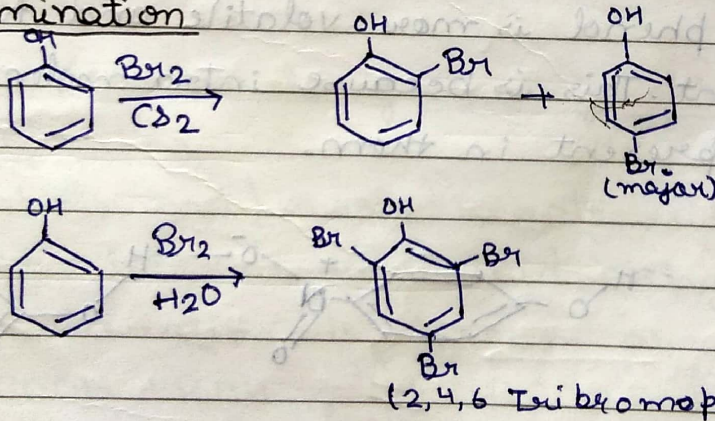 mination
OH
Br2
CS2
OH
Br
+
OH
Br
(major)
OH
Br2
H2O
OH
Br
Br
Br
(2,4,6 Tribromop